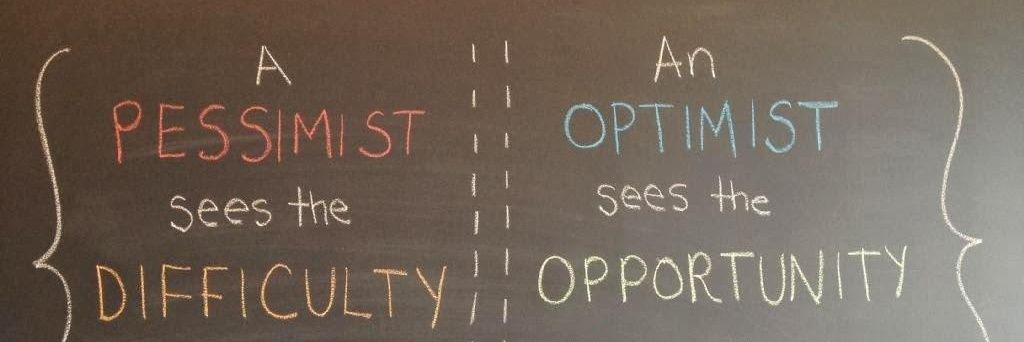 A
PESSIMIST
sees the
DIFFICULTY
An
OPTIMIST
sees the
OPPORTUNITY